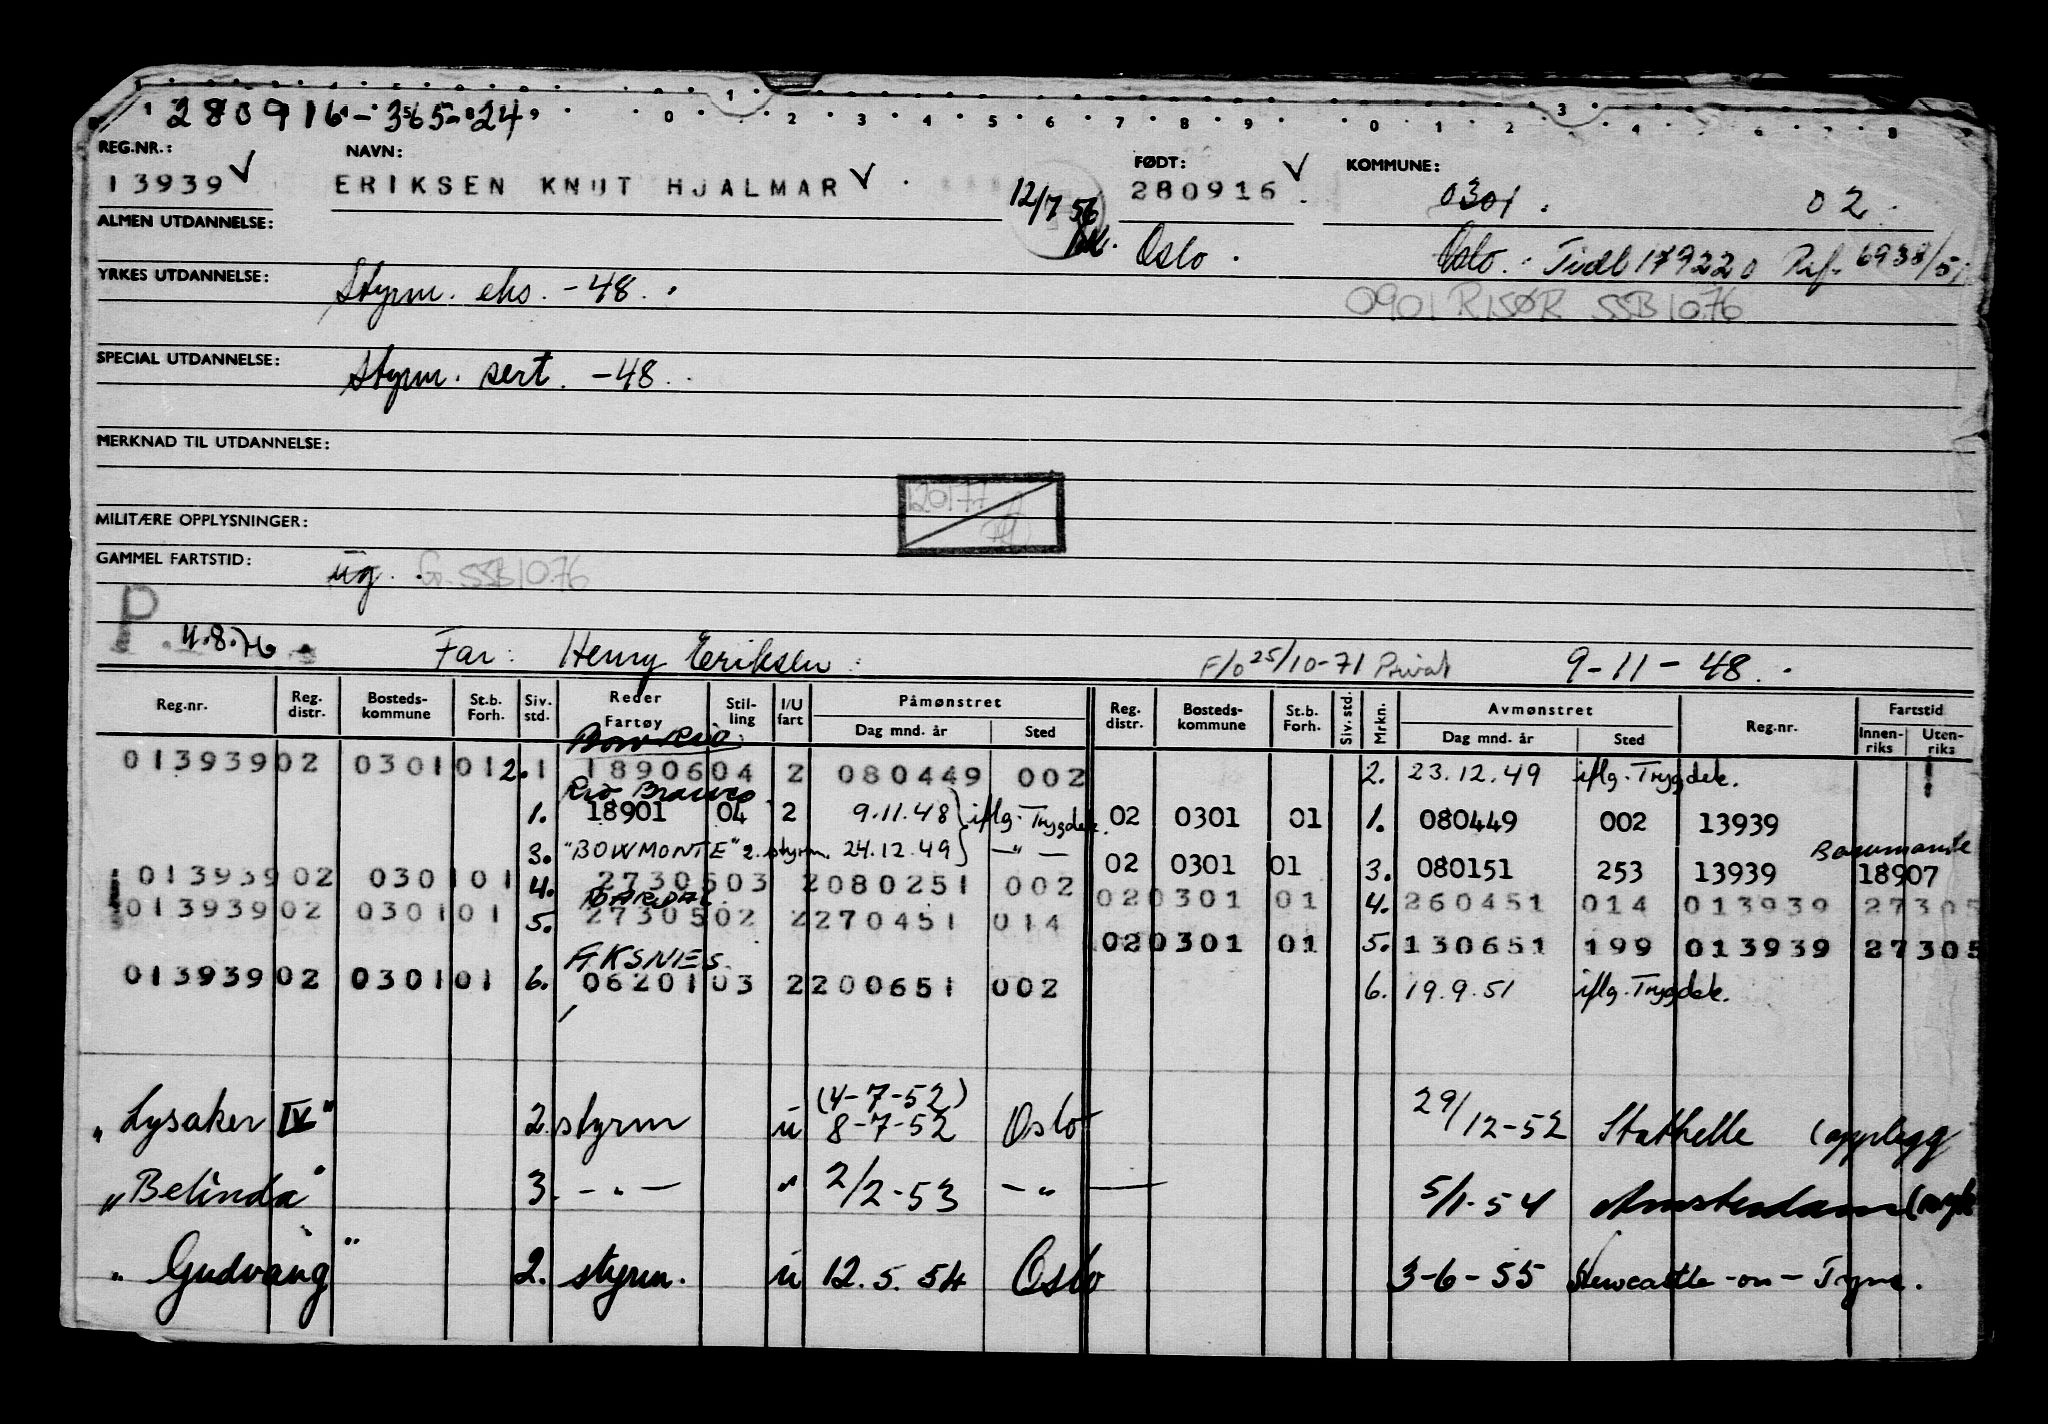 280916-36524
REG.NR.: NAVN: FØDT: KOMMUNE:
13939 ERIKSEN KNUT HJALMAR 12/7 56 280916 0301 02
ALMEN UTDANNELSE: Oslo. Oslo. Tidl 179220 Ref. 6938/51
YRKES UTDANNELSE: Styrm. eks. -48.
0901 RISØR SSB 10.76
SPECIAL UTDANNELSE: Styrm. sert. -48.
MERKNAD TIL UTDANNELSE:
120177
MILITÆRE OPPLYSNINGER:
GAMMEL FARTSTID: ug. G. SSB 10.76
P. 4.8.76 Far: Henry Eriksen F/O 25/10-71 Privat 9-11-48.
Reg.nr. Reg. distr. Bosteds-kommune St.b. Forh. Siv. std. Reder Fartøy Stil-ling I/U fart Påmønstret Dag mnd. år Sted Reg. distr. Bosteds-kommune St.b. Forh. Siv. std. Mrkn. Avmønstret Dag mnd. år Sted Reg.nr. Fartstid Innen-riks Uten-riks
Bow Rio
013939 02 0301 01 2. 1 18906 04 2 080449 002 2. 23.12.49 iflg. Trygdek.
Rio Bravo
1. 18901 04 2 9.11.48 iflg. Trygdek. 02 0301 01 1. 080449 002 13939
3. "BOWMONTE" 2. styrm. 24.12.49 -"- 02 0301 01 3. 080151 253 13939 Bowmonte 18907
013939 02 0301 01 4. 27305 03 2 080251 002 02 0301 01 4. 260451 014 013939 27305
BARDAL
013939 02 0301 01 5. 27305 02 2 270451 014 02 0301 01 5. 130651 199 013939 27305
AKSNES.
013939 02 0301 01 6. 06201 03 2 200651 002 6. 19.9.51 iflg. Trygdek.
(4-7-52)
"Lysaker IV" 2. styrm u 8-7-52 Oslo 29/12-52 Stathelle (opplegg
"Belinda" 3. -"- " 2/2-53 -"- 5/1-54 Amsterdam
"Gudvang" 2. styrm. u 12.5.54 Oslo 3-6-55 Newcastle-on-Tyne.